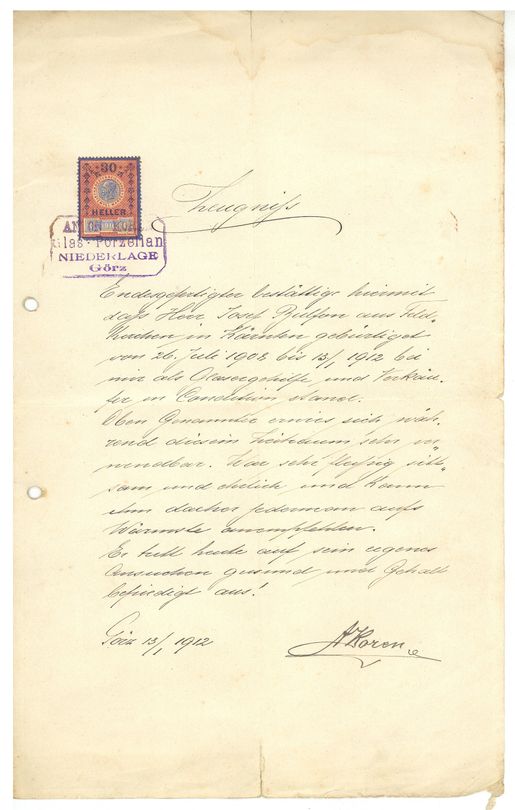 30
HELLER
Zeugniß
ANTON KOREN
Glas-Porzellan
NIEDERLAGE
Görz
Endesgefertigter bestättigt hiermit
daß Herr Josef aus Feld-
kirchen in Kärnten gebürtiget
von 26. Juli 1908 bis 13/1 1912 bei
mir als Glasergehilfe und Verkäu-
fer in Condition stand.
Oben Genannter erwies sich wäh-
rend diesem Zeitraum sehr ver-
wendbar. War sehr fleißig sitt-
sam und ehrlich und kann
ihn daher jederman aufs
Wärmste anempfehlen.
Er tritt heute auf sein eigenes
Ansuchen gesund und Gehalt
befriedigt aus!
Görz 13/1 1912
A Koren